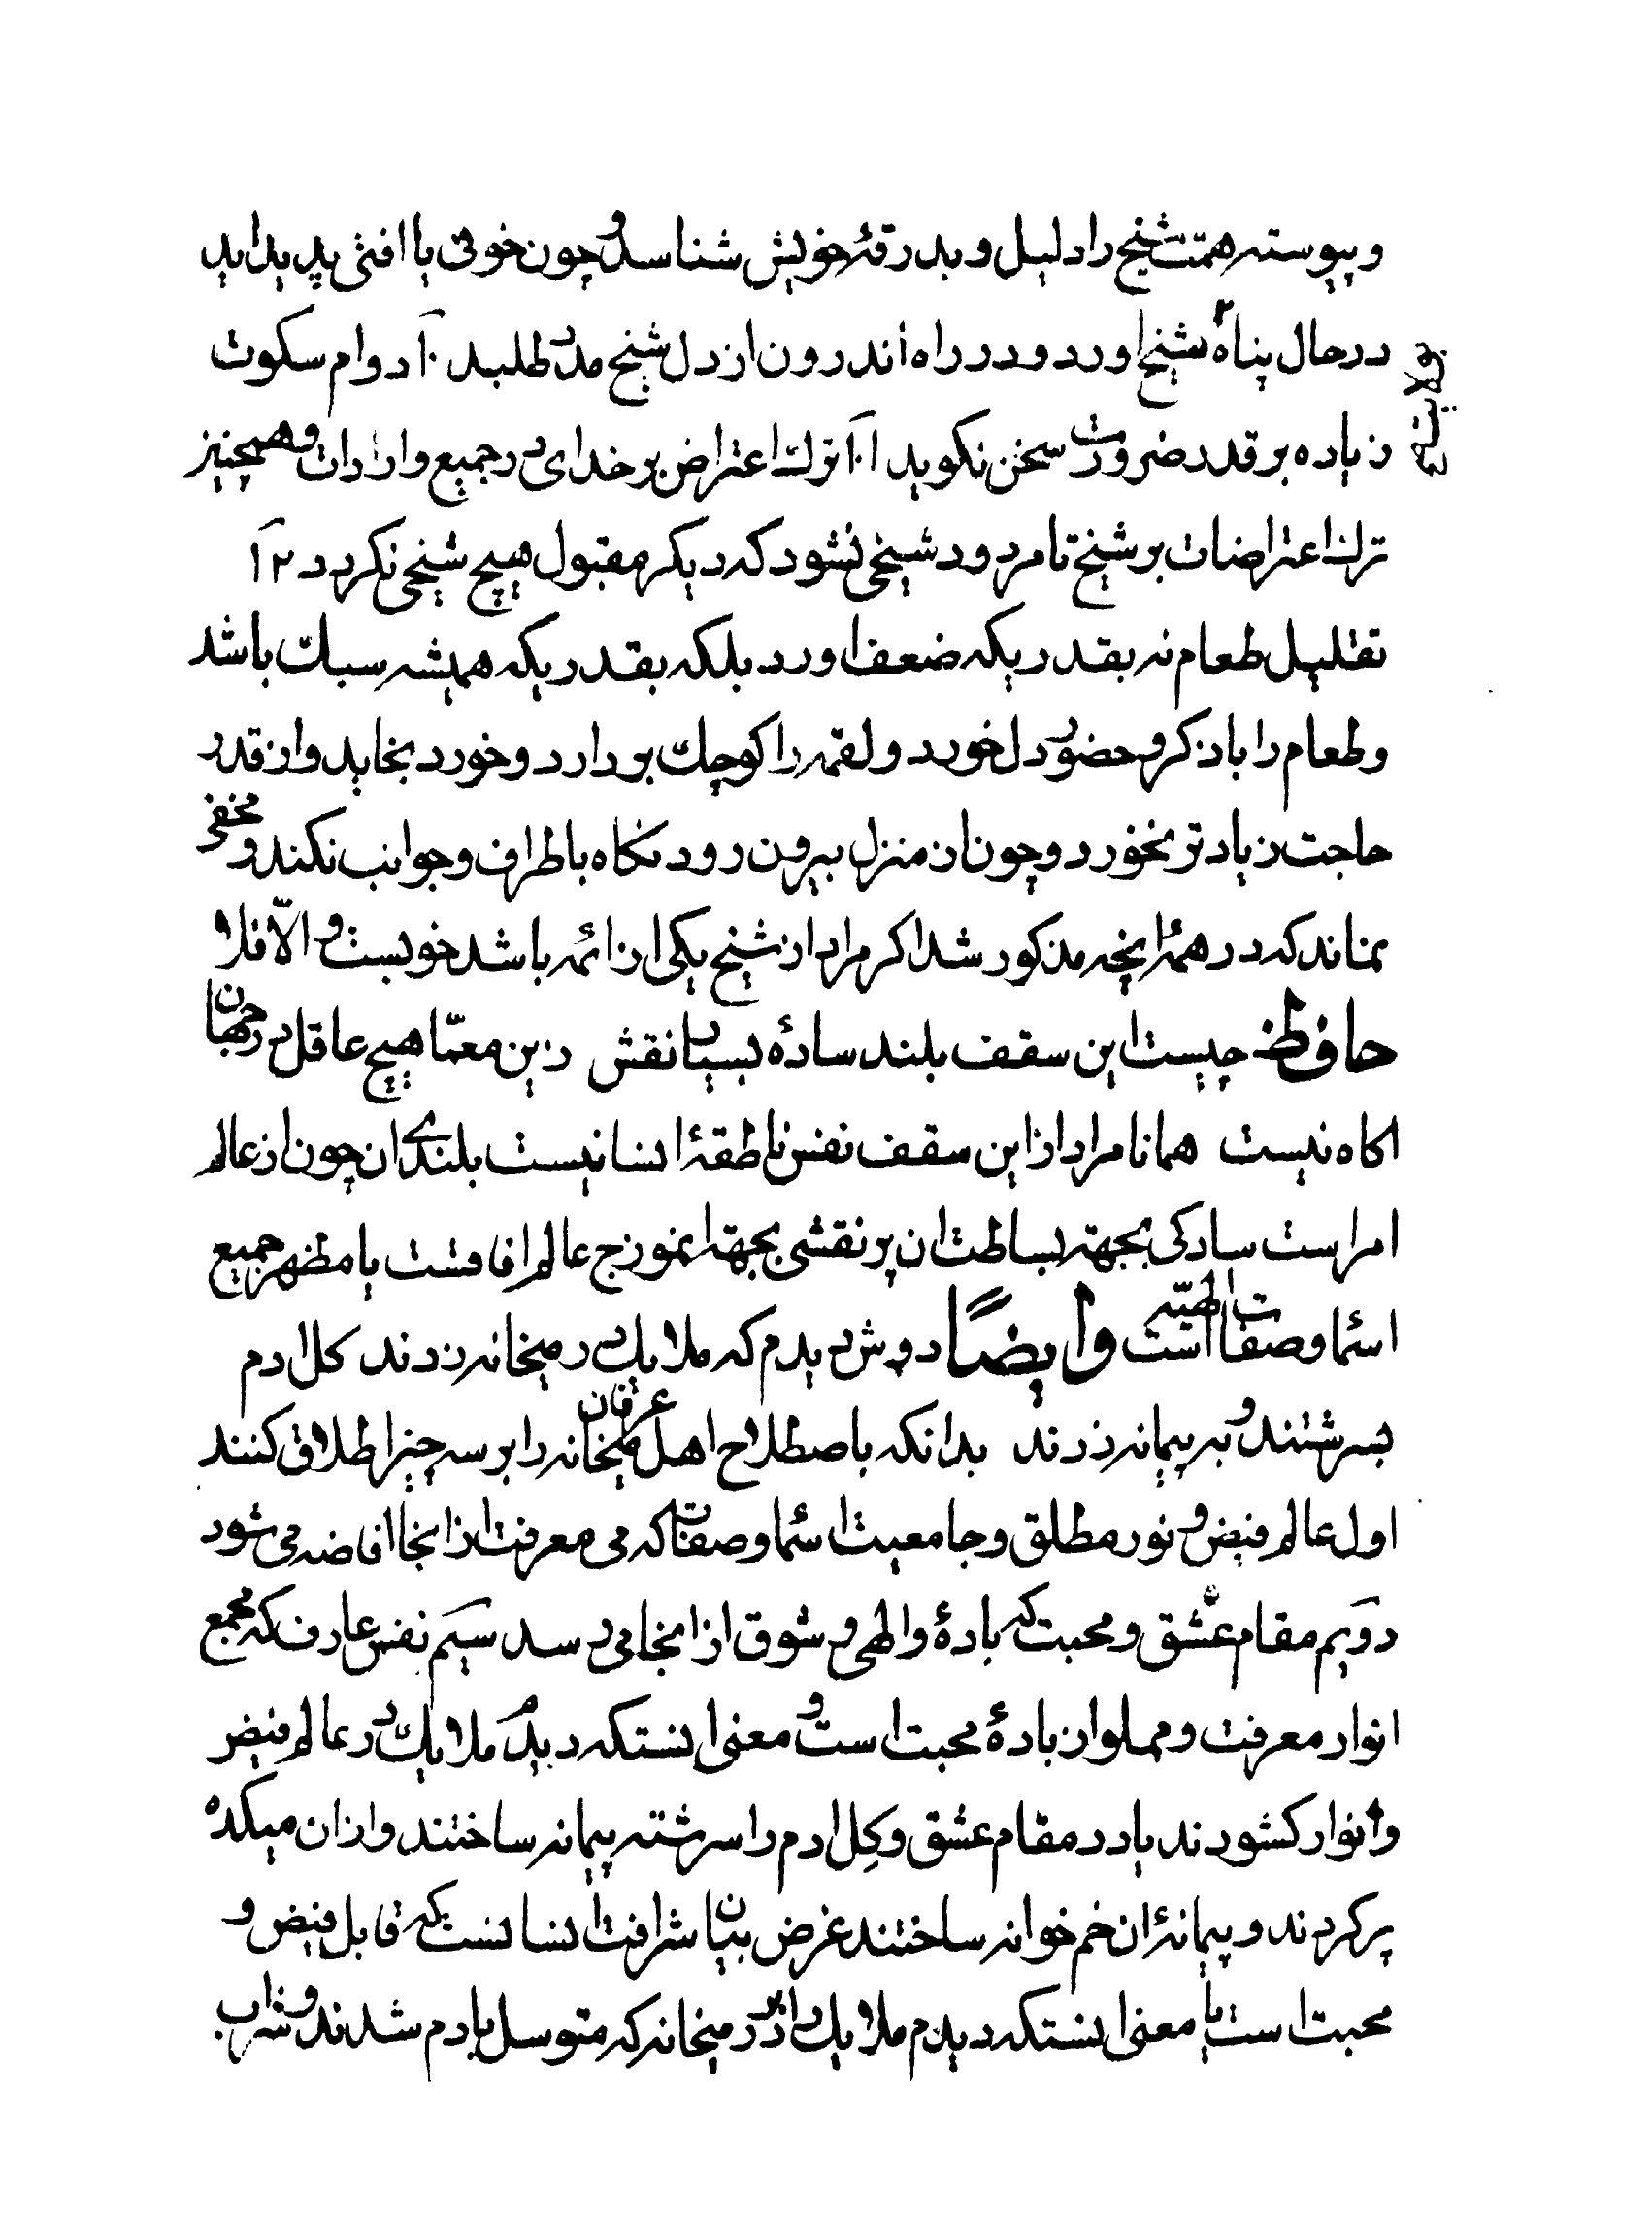 و پیوسته همت شیخ را دلیل و بدرقهٔ خویش شناسد و چون خوفی یا افتی پدید اید
در حال پناه بشیخ اورد و در راه اندرون از دل شیخ مدد طلبد ۱۰ دوام سکوت
زیاده بر قدر ضرورت سخن نکوید ۱۱ ترک اعتراض بر خدای در جمیع واردات و همچنین
ترک اعتراضات بر شیخ تا مردود شیخی نشود که دیکر مقبول هیچ شیخی نکردد ۱۲
تقلیل طعام نه بقدریکه ضعف اورد بلکه بقدریکه همیشه سبک باشد
و طعام را با ذکر و حضور دل خورد و لقمه را کوچک بردارد و خورد بخاید و از قدر
حاجت زیادتر نخورد و چون از منزل بیرون رود نکاه باطراف و جوانب نکند و مخفی
نماند که در همهٔ انچه مذکور شد اکر مراد از شیخ یکی از ائمه باشد خوبست و الّا فلا
حافظ چیست این سقف بلند سادهٔ بسیار نقش زین معمّا هیچ عاقل در جهان
اکاه نیست همانا مراد از این سقف نفس ناطقهٔ انسانیست بلندی ان چون از عالم
امر است سادکی بجهته بساطت ان پر نقشی بجهته انموزج عالم افاقست یا مظهر جمیع
اسما و صفات الهیّه است و ایضاً دوش دیدم که ملایک در میخانه زدند کل ادم
بسرشتند و به پیمانه زدند بدانکه باصطلاح اهل عرفان میخانه را بر سه چیز اطلاق کنند
اول عالم فیض و نور مطلق و جامعیت اسما و صفات که می معرفت از انجا افاضه می شود
دویم مقام عشق و محبت که بادهٔ والهی و شوق از انجا می رسد سیم نفس عارف که مجمع
انوار معرفت و مملو از بادهٔ محبت است و معنی اینستکه دیدم ملایک در عالم فیض
و انوار کشودند یا در مقام عشق و کِل ادم را سرشته پیمانه ساختند و از ان میکده
پر کردند و پیمانهٔ ان خم خوانه ساختند غرض بیان شرافت انسانست که قابل فیض و
محبت است یا معنی اینستکه دیدم ملایک را در در میخانه که متوسل بادم شدند و شراب